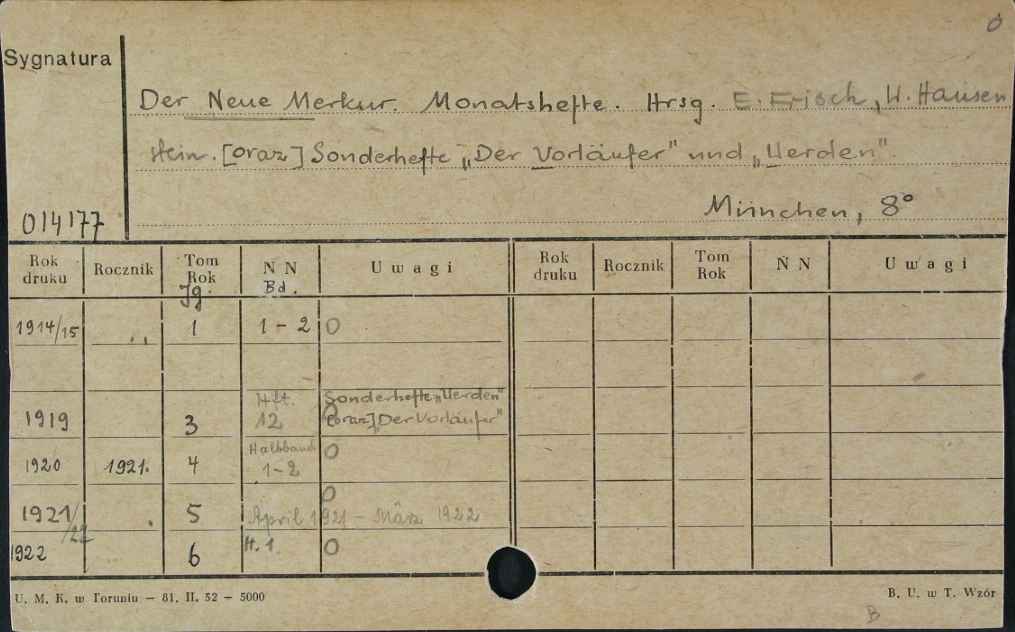 0
Sygnatura
Der Neue Merkur. Monatshefte. Hrsg. E. Frisch, W. Hausen
stein. [oraz] Sonderhefte „Der Vorläufer" und „Werden".
014177 München, 8°
Rok druku Rocznik Tom Rok N N Uwagi Rok druku Rocznik Tom Rok N N Uwagi
Jg. Bd.
1914/15 „ 1 1-2 0
Hft. Sonderhefte „Werden"
1919 3 12 [oraz] „Der Vorläufer"
Halbband 0
1920 1921. 4 1-2
0
1921/22 . 5 April 1921 - März 1922
1922 6 H. 1. 0
U. M. K. w Toruniu — 81. II. 52 — 5000 B. U. w T. Wzór
B